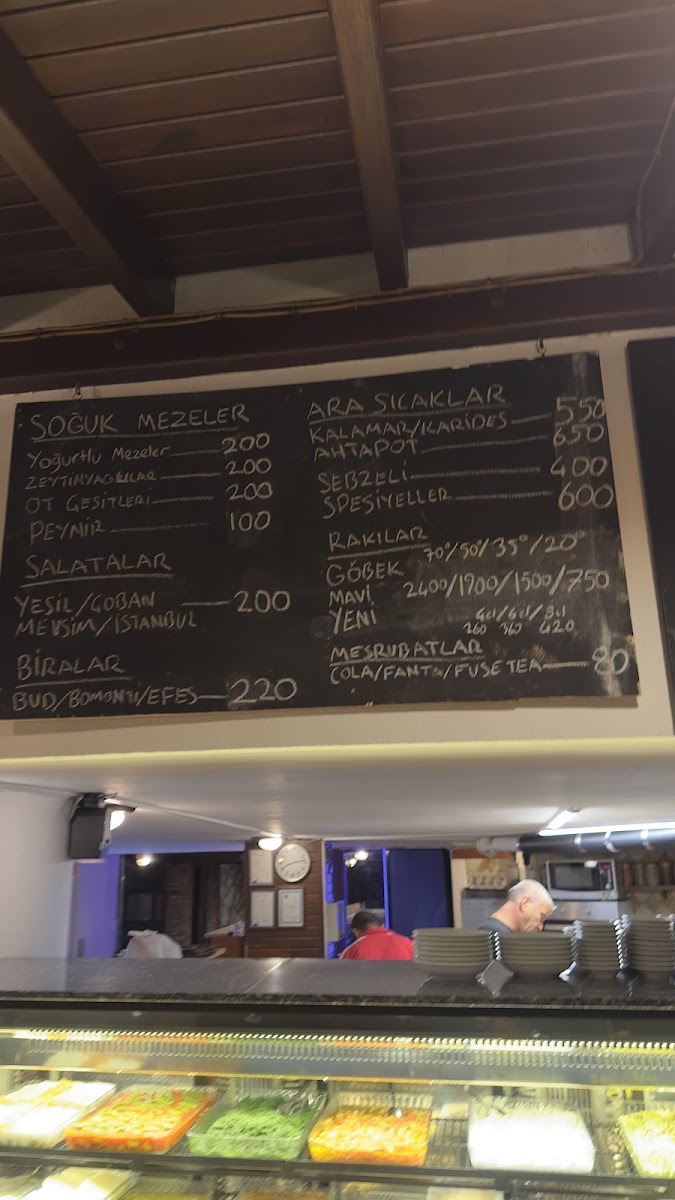 SOĞUK MEZELER
Yoğurtlu Mezeler 200
ZEYTİNYAĞLILAR 200
OT ÇEŞİTLERİ 200
PEYNİR 100
SALATALAR
YEŞİL/ÇOBAN 200
MEVSİM/İSTANBUL
BİRALAR
BUD/BOMONTİ/EFES 220
ARA SICAKLAR
KALAMAR/KARİDES 550
AHTAPOT 650
SEBZELİ 400
SPESİYELLER 600
RAKILAR
70°/50°/35°/20°
GÖBEK
MAVİ 2400/1900/1500/750
YENİ
4cl/6cl/8cl
260 360 420
MEŞRUBATLAR
COLA/FANTA/FUSE TEA 80